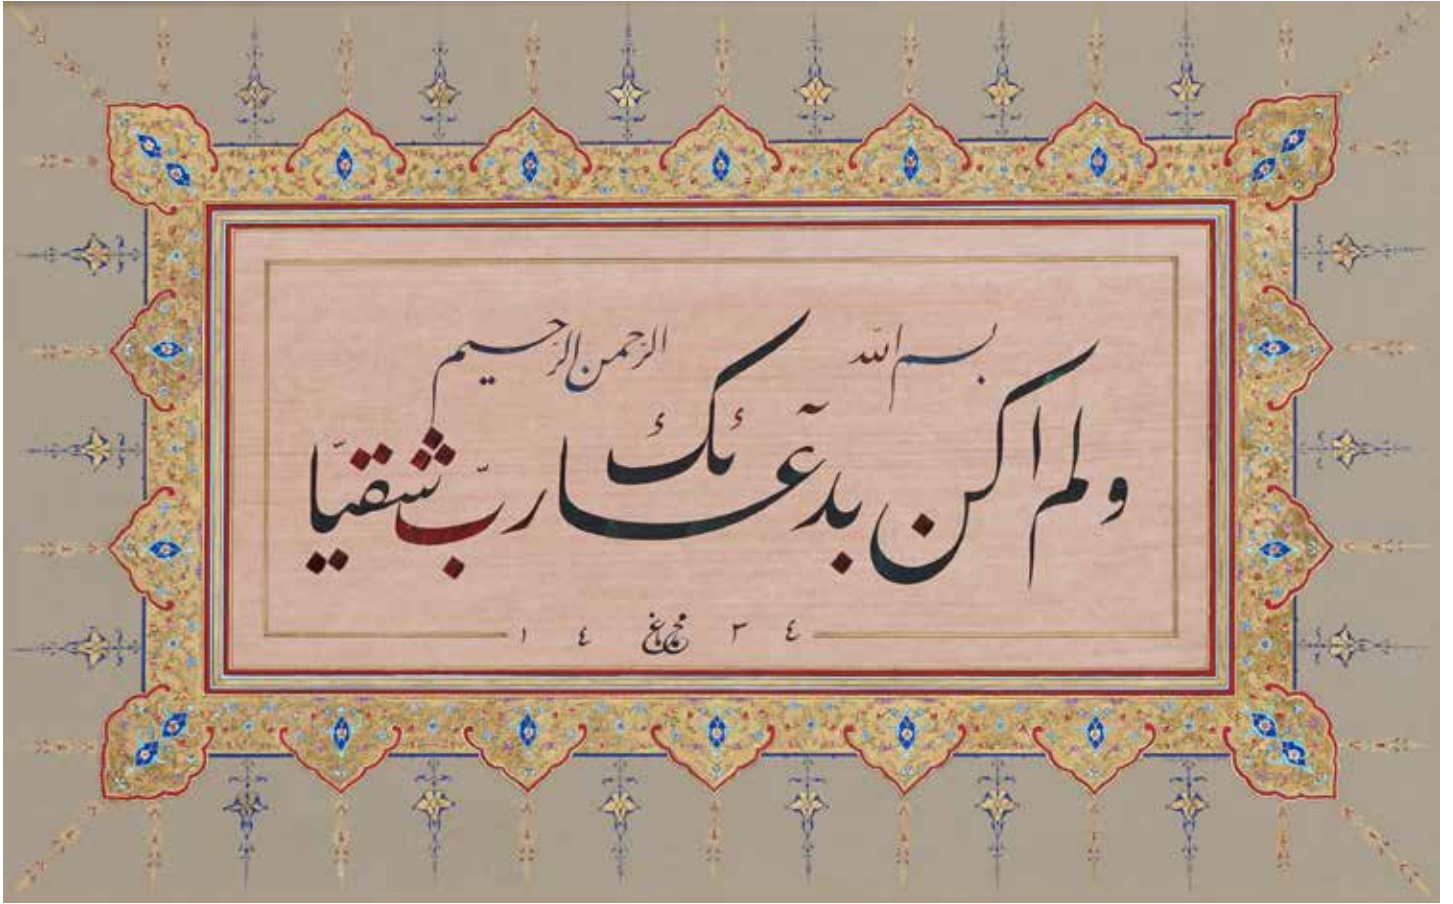 بسم الله الرحمن الرحيم
ولم اكن بدعآئك ربّ شقيّا
١٤ ٣٤